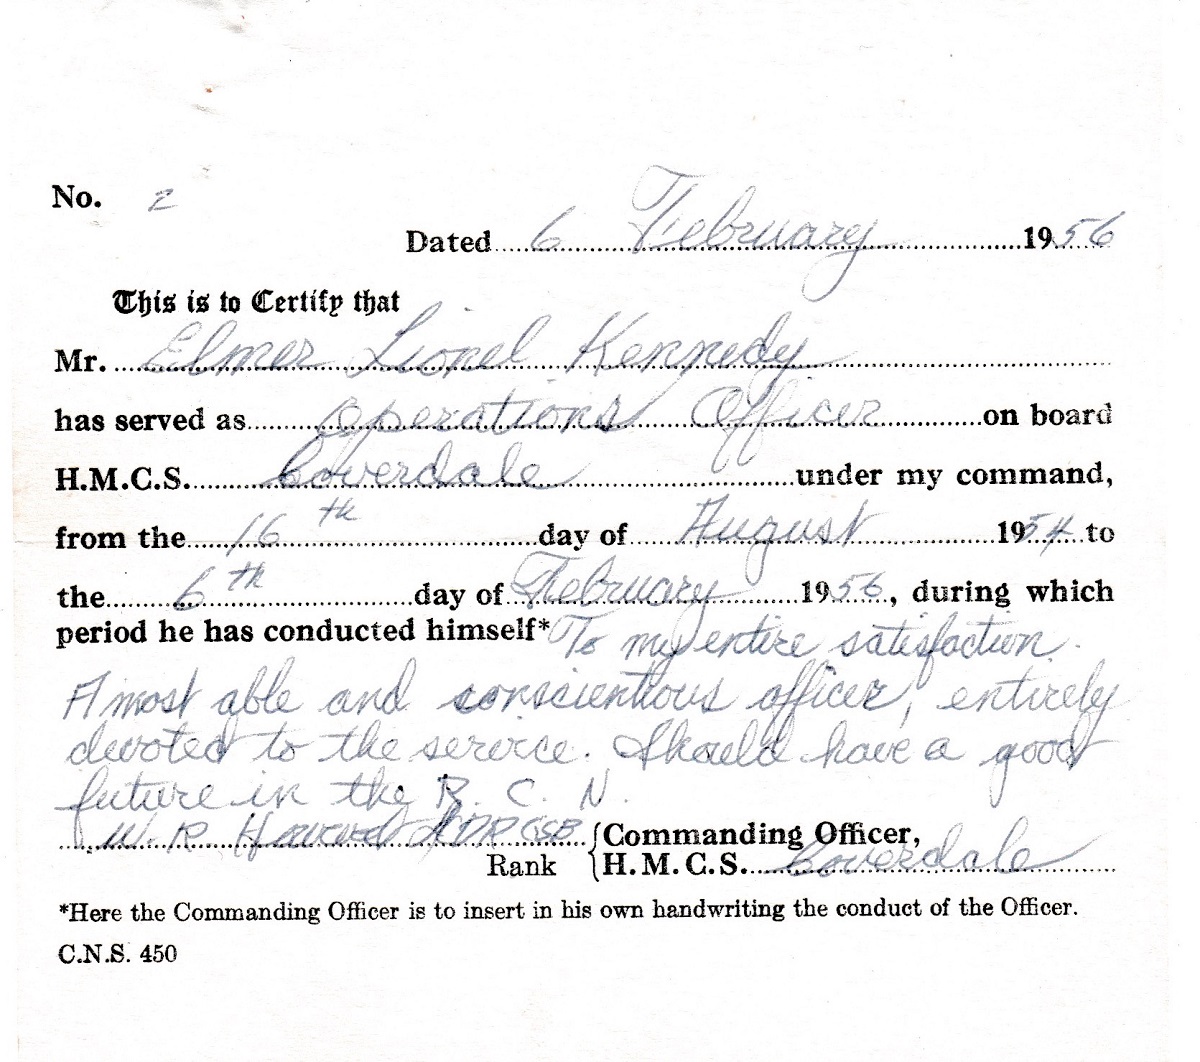 No. 2
Dated 6 February 1956
This is to Certify that
Mr. Elmer Lionel Kennedy
has served as Operations Officer on board
H.M.C.S. Coverdale under my command,
from the 16th day of August 1954 to
the 6th day of February 1956, during which
period he has conducted himself* To my entire satisfaction.
A most able and conscientious officer, entirely
devoted to the service. Should have a good
future in the R. C. N.
W. R. Commanding Officer,
Rank H.M.C.S. Coverdale
*Here the Commanding Officer is to insert in his own handwriting the conduct of the Officer.
C.N.S. 450